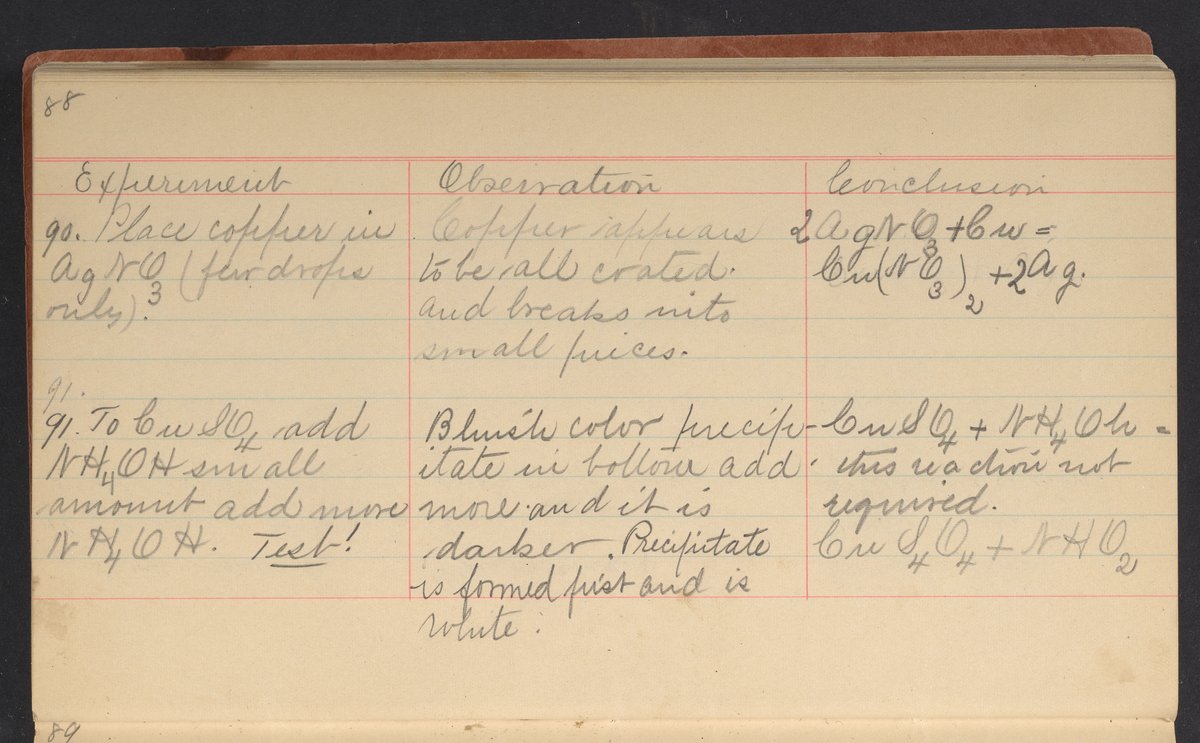 88
Experiment
90. Place copper in
AgNO3 (few drops
only).
91.
91. To CuSO4 add
NH4OH small
amount add more
NH4OH. Test!
Observation
Copper appears
to be all coated.
and breaks into
small pieces.
Bluish color precip-
itate in bottom add
more and it is
darker. Precipitate
is formed first and is
white.
Conclusion
2AgNO3+Cu=
Cu(NO3)2+2Ag.
CuSO4 + NH4Oh =
this reaction not
required.
CuS4O4 + NHO2
89